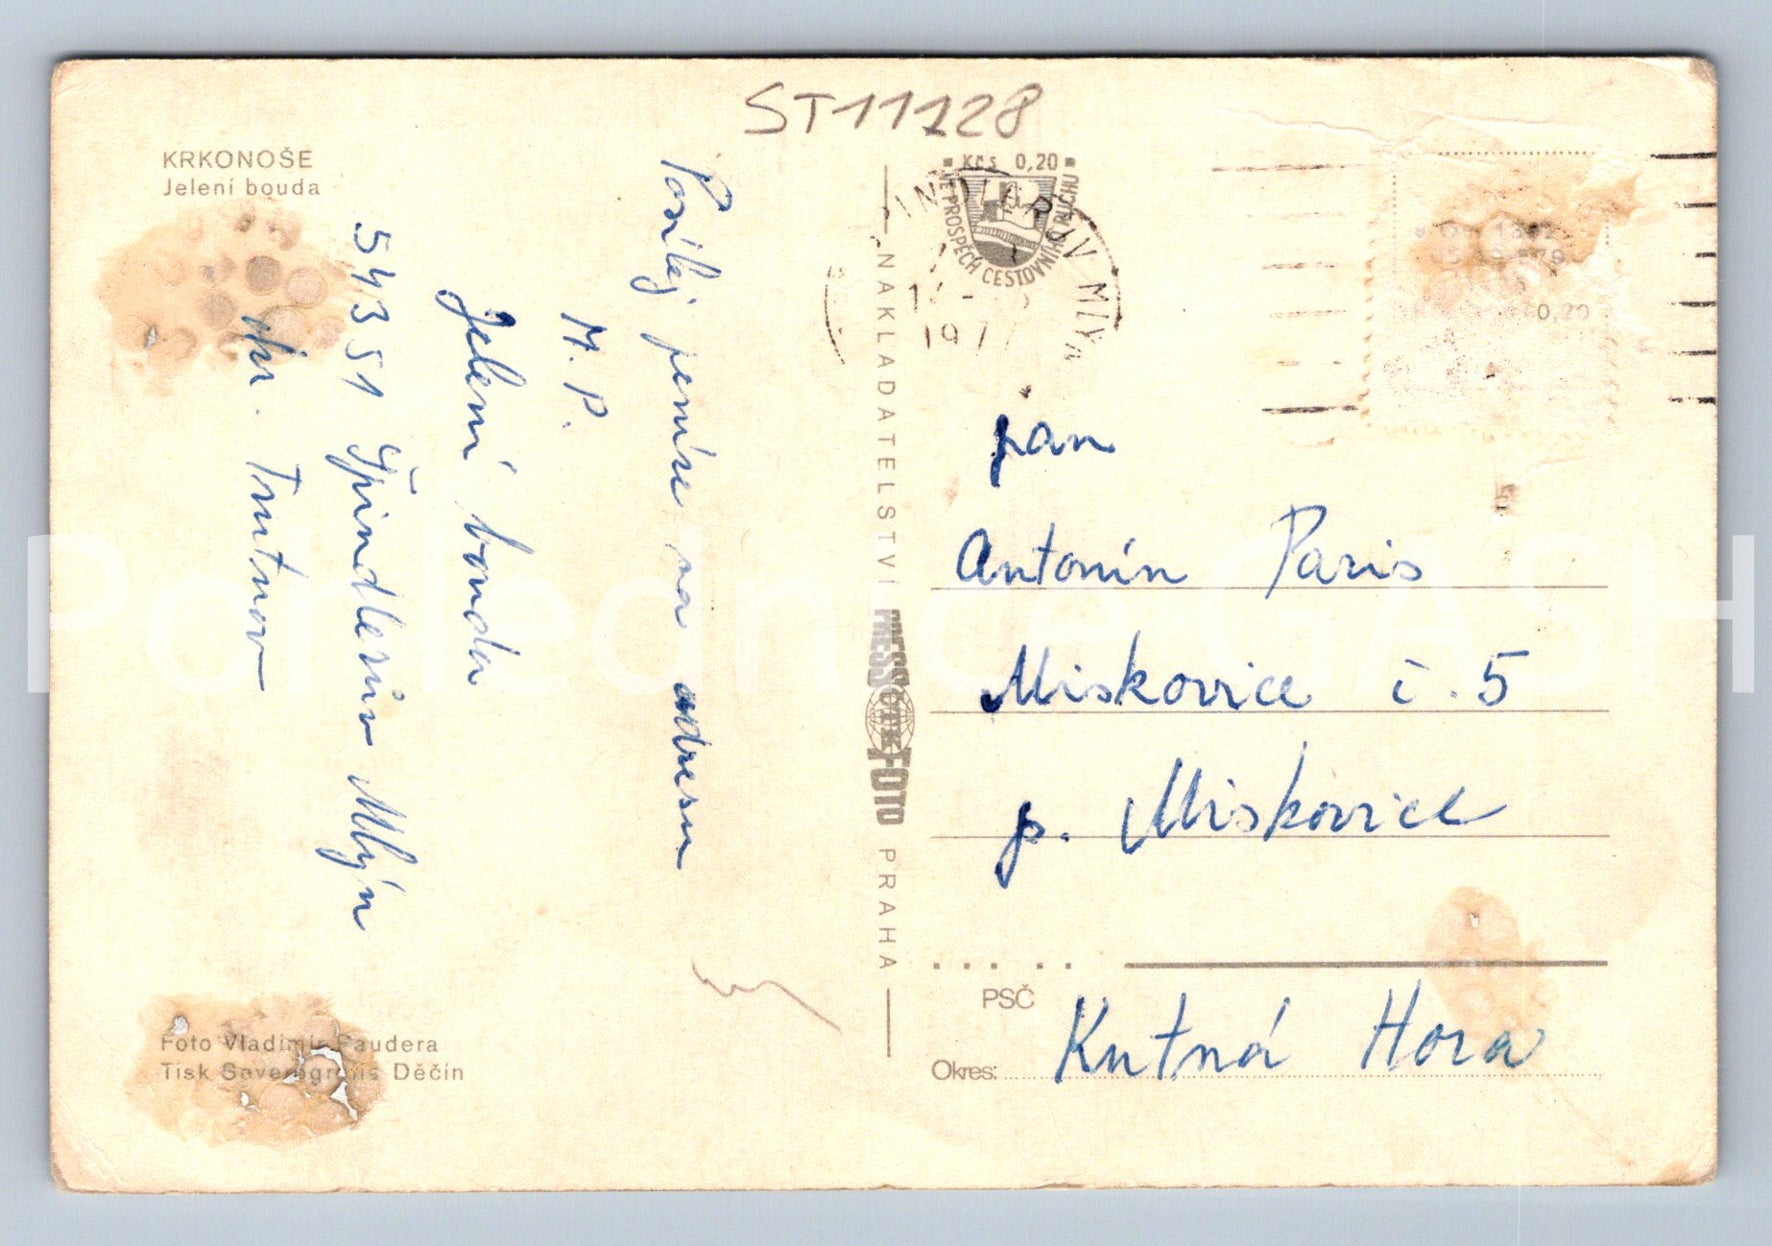 ST11128
KRKONOŠE
Jelení bouda
Posílej peníze na adresu
M. P.
Jelení bouda
543 51 Špindlerův Mlýn
okr. Trutnov
Foto Vladimír Paudera
Tisk Severografia Děčín
NAKLADATELSTVÍ PRESSFOTO PRAHA
ČTK
Kčs 0,20
VE PROSPĚCH CESTOVNÍHO RUCHU
MLÝN
197
0,20
pan
Antonín Paris
Miskovice č. 5
p. Miskovice
PSČ
Okres: Kutná Hora
Pohlednice GASH